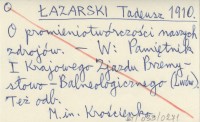 ŁAZARSKI Tadeusz 1910.
O promieniotwórczości naszych
zdrojów. – W: Pamiętnik
I Krajowego Zjazdu Przemy-
słowo - Balneologicznego (Lwów)
Też odb.
M. in. Krościenko